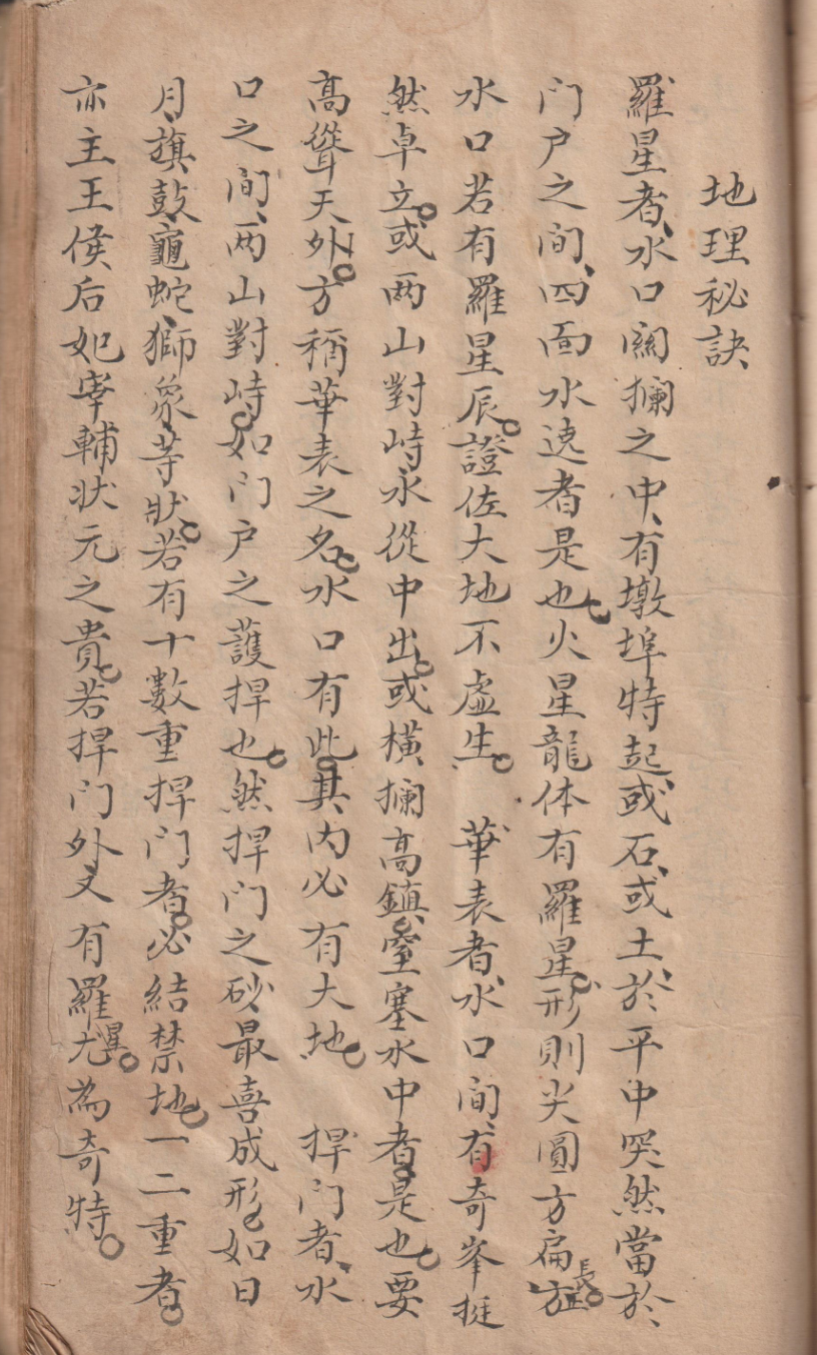 地理秘訣
羅星者、水口関攔之中、有墩埠特起、或石、或土、於平中突然當於
门户之间、四面水遶者是也。火星龍体有羅星。形則尖圓方扁長。
水口若有羅星辰。證佐大地不虚生。華表者、水口间、有奇峯挺
然卓立。或两山對峙水從中出。或横攔高鎮、窒塞水中者。是也。要
高聳天外。方稱華表之名。水口有此。其内必有大地。捍门者、水
口之间、两山對峙。如门户之護捍也。然捍门之砂、最喜成形。如日
月、旗鼓、龜蛇、獅象、等狀。若有十數重捍门者。必結禁地。一二重者。
亦主王侯、后妃、宰輔、状元之貴。若捍门外又有羅星。尤為奇特。